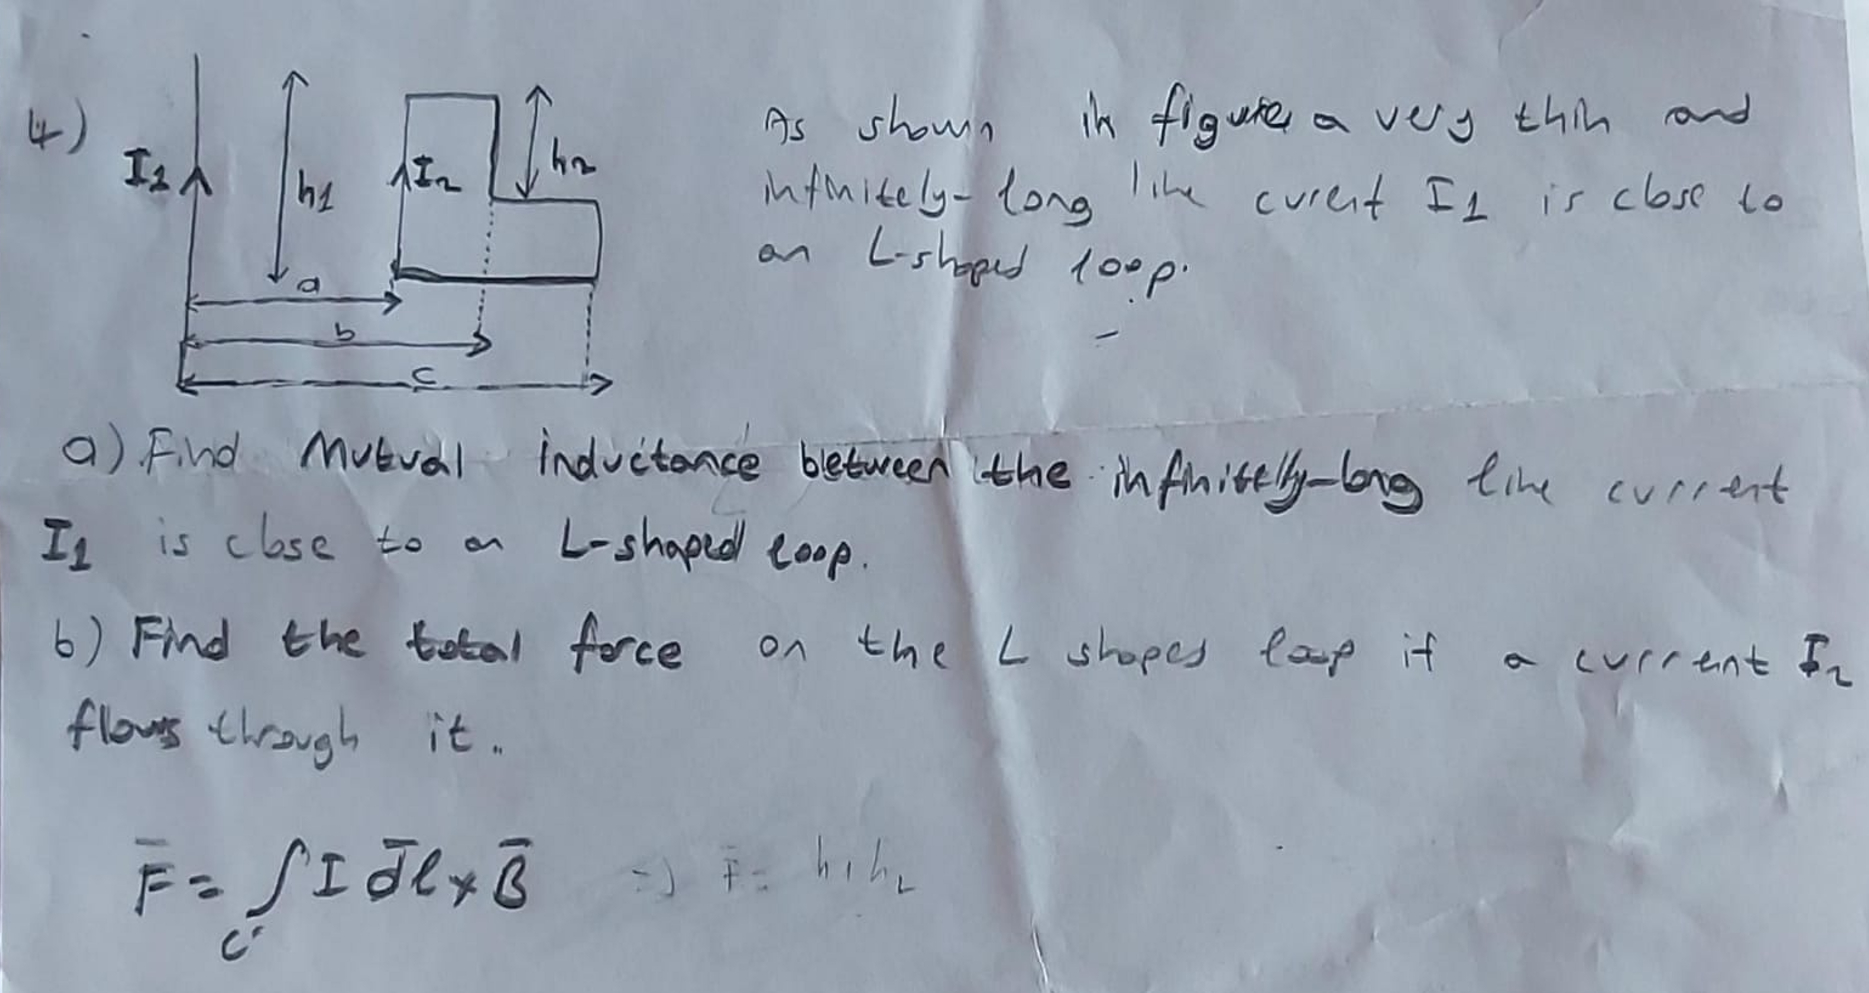 4)
I1
h1
I2
h2
a
b
c
As shown in figure, a very thin and
infinitely-long line curent I1 is close to
an L-shaped loop.
a) Find Mutual inductance between the infinitelly-long line current
I1 is close to an L-shaped loop.
b) Find the total force on the L shapes loop if a current I2
flows through it.
F̄ = ∫ I d̄l x B̄ => F̄ = h1h2
C'